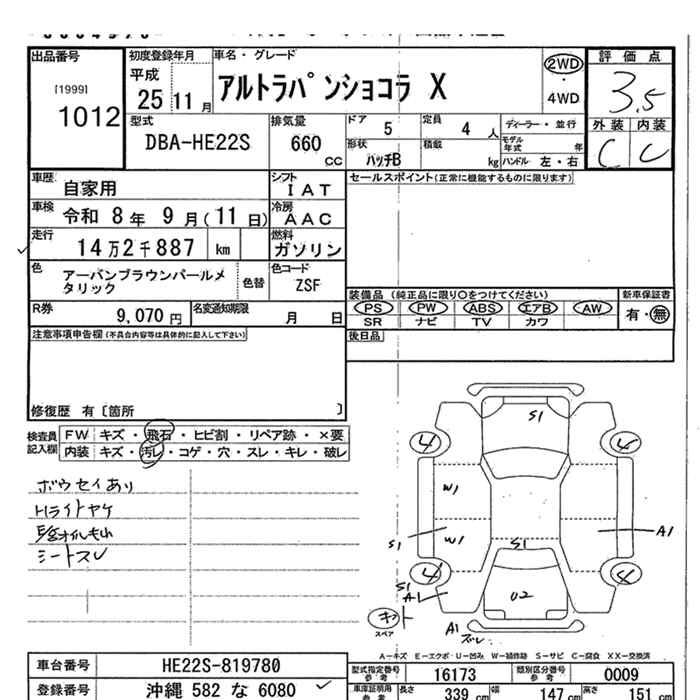 出品番号
[1999]
1012
初度登録年月
平成
25 11 月
車名・グレード
アルトラパンショコラ X
2WD
・
4WD
評価点
3.5
外装 内装
C C
型式
DBA-HE22S
排気量
660
CC
ドア 5
定員 4 人
ディーラー・並行
モデル年式 年
形状 ハッチB
積載 kg
ハンドル 左・右
車歴 自家用
シフト IAT
車検 令和 8年 9月(11日)
冷房 AAC
走行 14万2千887 km
燃料 ガソリン
色 アーバンブラウンパールメタリック
色替
色コード ZSF
R券 9,070 円
名変通知期限 月 日
セールスポイント(正常に機能するものに限ります)
装備品(純正品に限り○をつけてください)
新車保証書
PS PW ABS エアB AW
SR ナビ TV カワ
有・無
後日品
注意事項申告欄(不具合内容等は具体的に記入して下さい)
修復歴 有〔箇所 〕
検査員記入欄
FW キズ・飛石・ヒビ割・リペア跡・×要
内装 キズ・汚レ・コゲ・穴・スレ・キレ・破レ
ボウセイあり
Hライトヤケ
シートスレ
S1
4 4
W1
W1
S1
S1
A1
4 4
S1
A1
U2
スペア
A1
A-キズ E-エクボ U-凹み W-補修跡 S-サビ C-腐食 XX-交換済
車台番号 HE22S-819780
登録番号 沖縄 582 な 6080
型式指定番号 参考 16173
類別区分番号 参考 0009
車庫証明用 参考
長さ 339 cm
幅 147 cm
高さ 151 cm